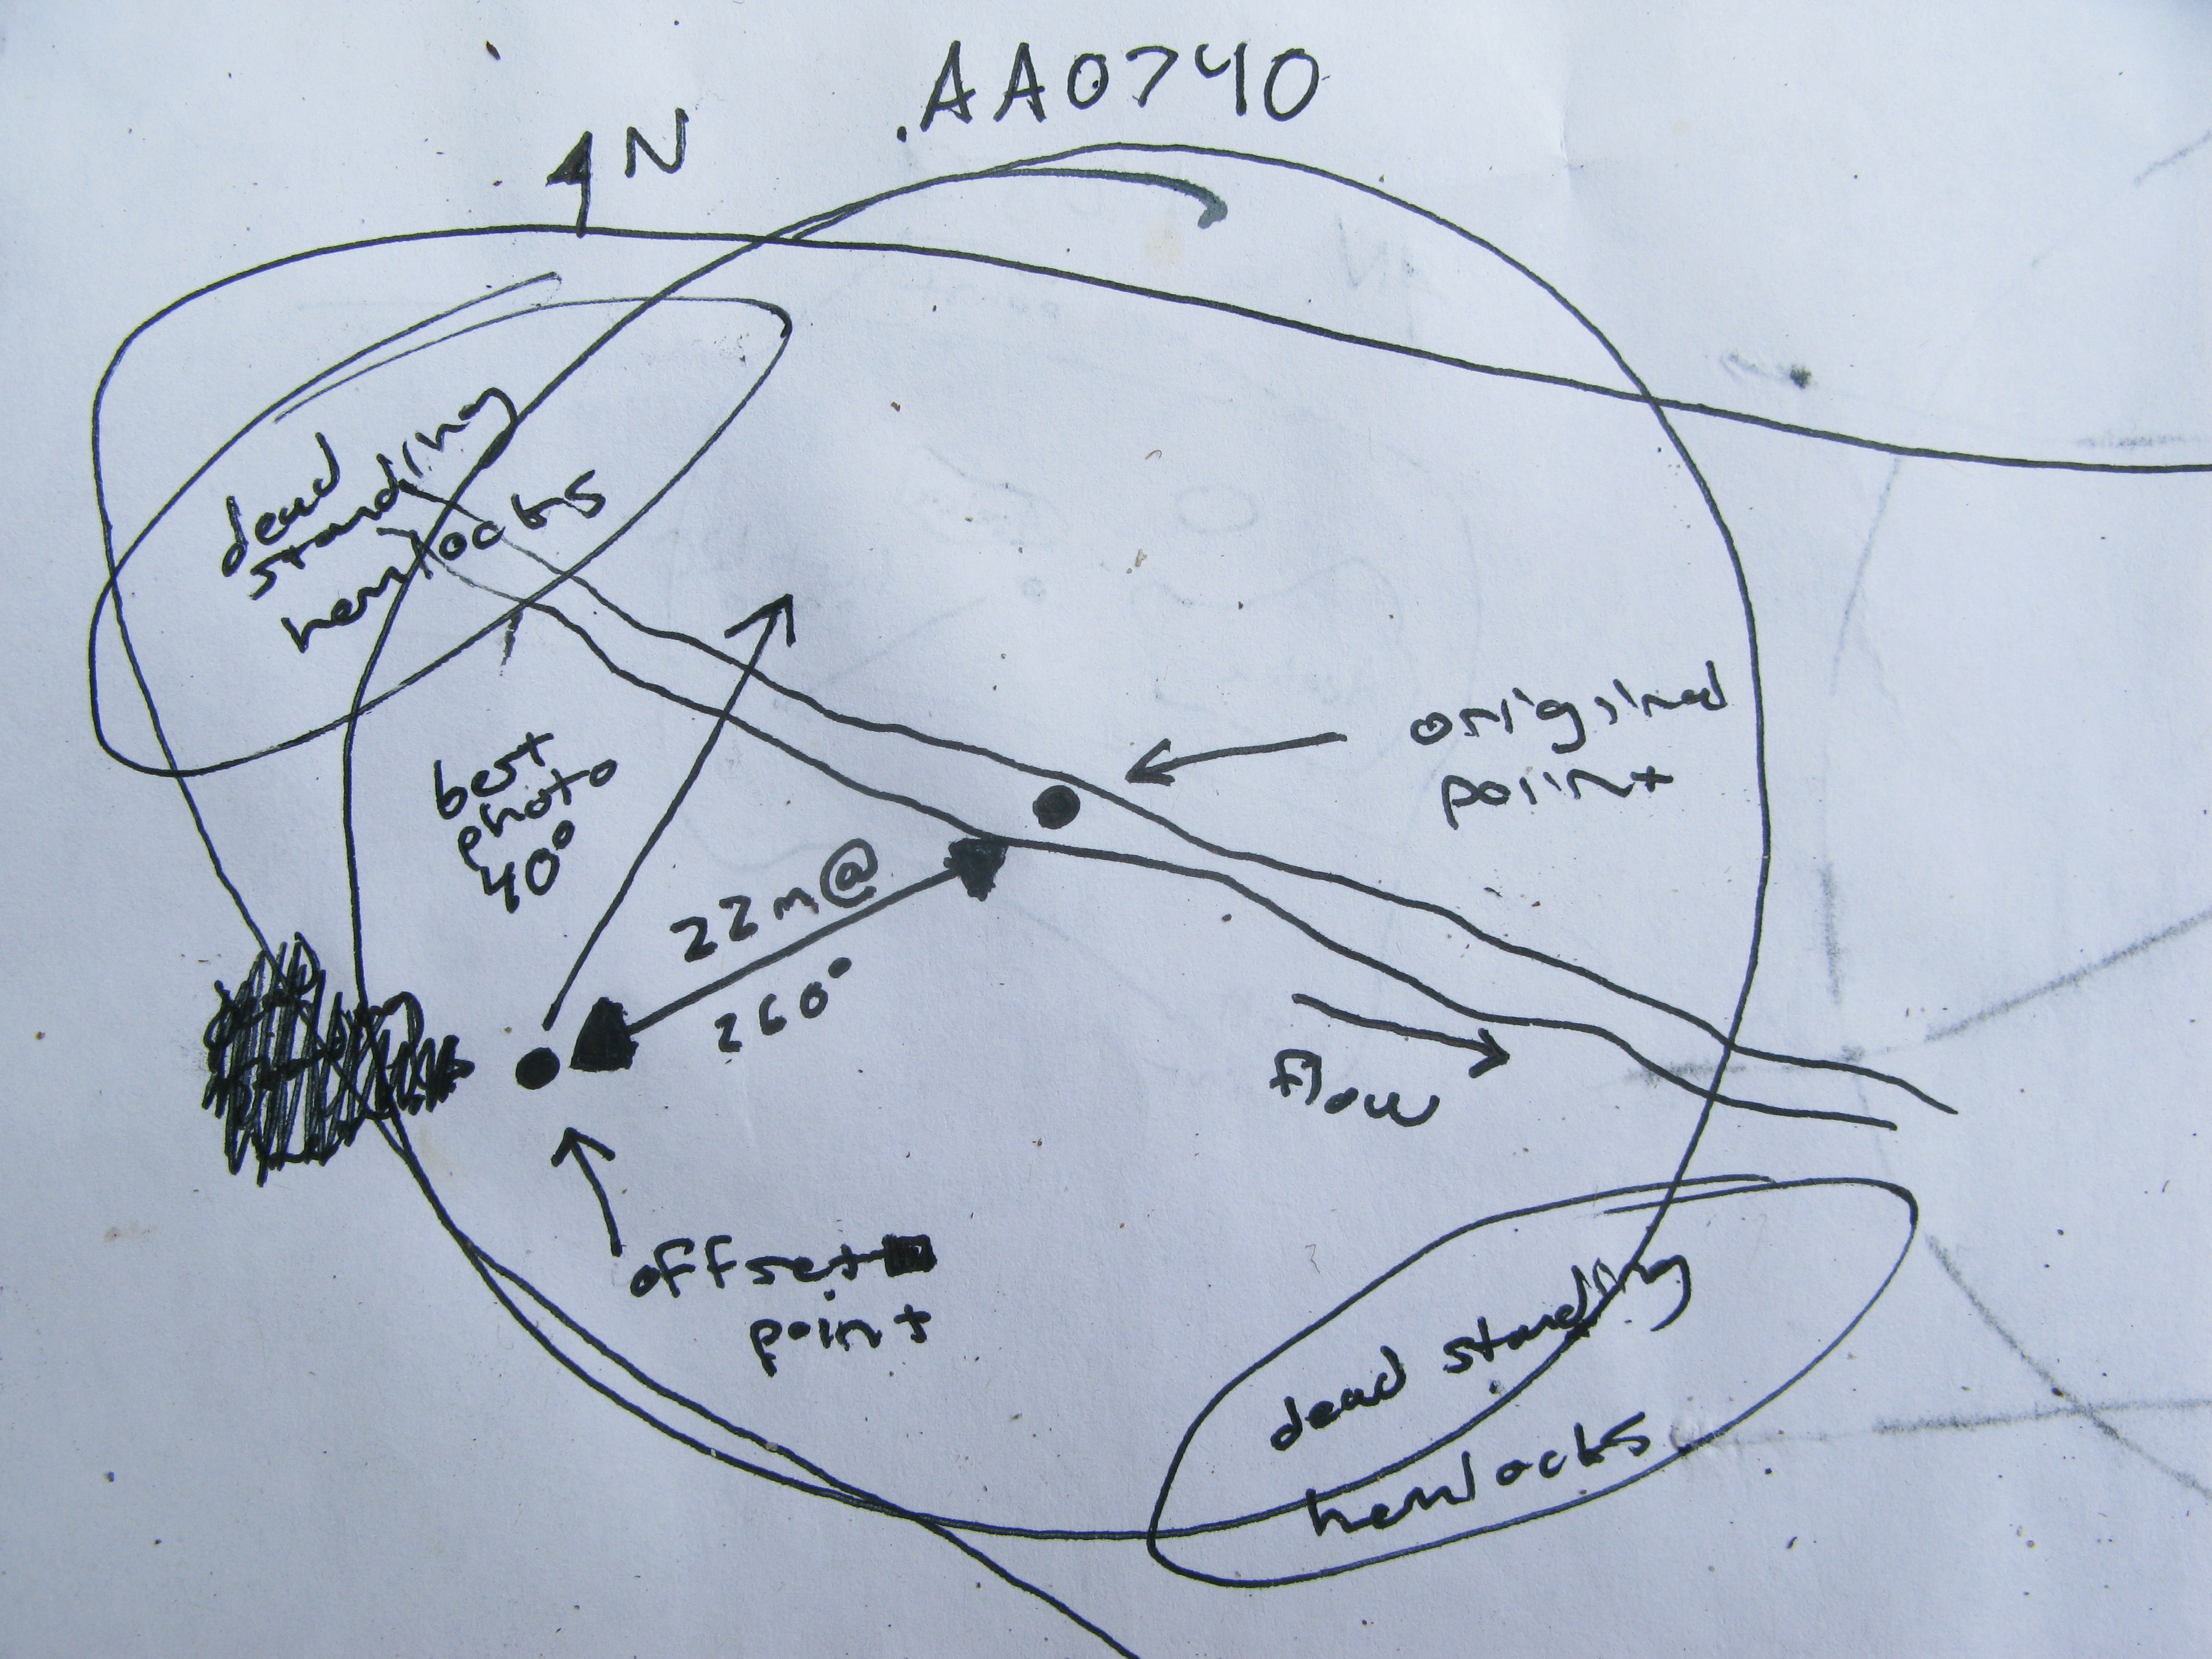 .AA0740
N
dead
standing
hemlocks
best
photo
40°
22m@
260°
original
point
flow
offset
point
dead standing
hemlocks